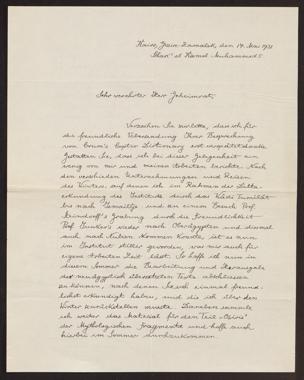 Kairo, Gezira-Zamalek, den 14. Mai 1931
Shari el Kamel Muhammed 5
Sehr verehrter Herr Geheimrat,
Verzeihen Sie bitte, dass ich für
die freundliche Übersendung Ihrer Besprechung
von Crum's Coptic Dictionary erst verspätet danke.
Gestatten Sie, dass ich bei dieser Gelegenheit ein
wenig von mir und meinen Arbeiten berichte. Nach
den verschiedenen Unternehmungen und Reisen
des Winters, auf denen ich im Rahmen der Delta-
erkundung des Instituts durch das Wadi Tumilat
bis nach Ismailija und an einem Besuch Prof.
Steindorff's Grabung durch die Freundlichkeit
Prof. Junker's wieder nach Oberägypten und diesmal
auch nach Nubien kommen konnte, ist es nun
im Institut stiller geworden, was mir auch für
eigene Arbeiten Zeit lässt. So hoffe ich nun in
diesem Sommer die Bearbeitung und Herausgabe
des neuägyptisch übersetzten Texts abschliessen
zu können, nach denen Sie sich einmal freund-
lichst erkundigt haben, und die ich über den
Winter zurückstellen musste. Daneben sammle
ich weiter das Material für den Teil
der Mythologischen Fragmente und hoffe auch
hierbei im Sommer durchzukommen.